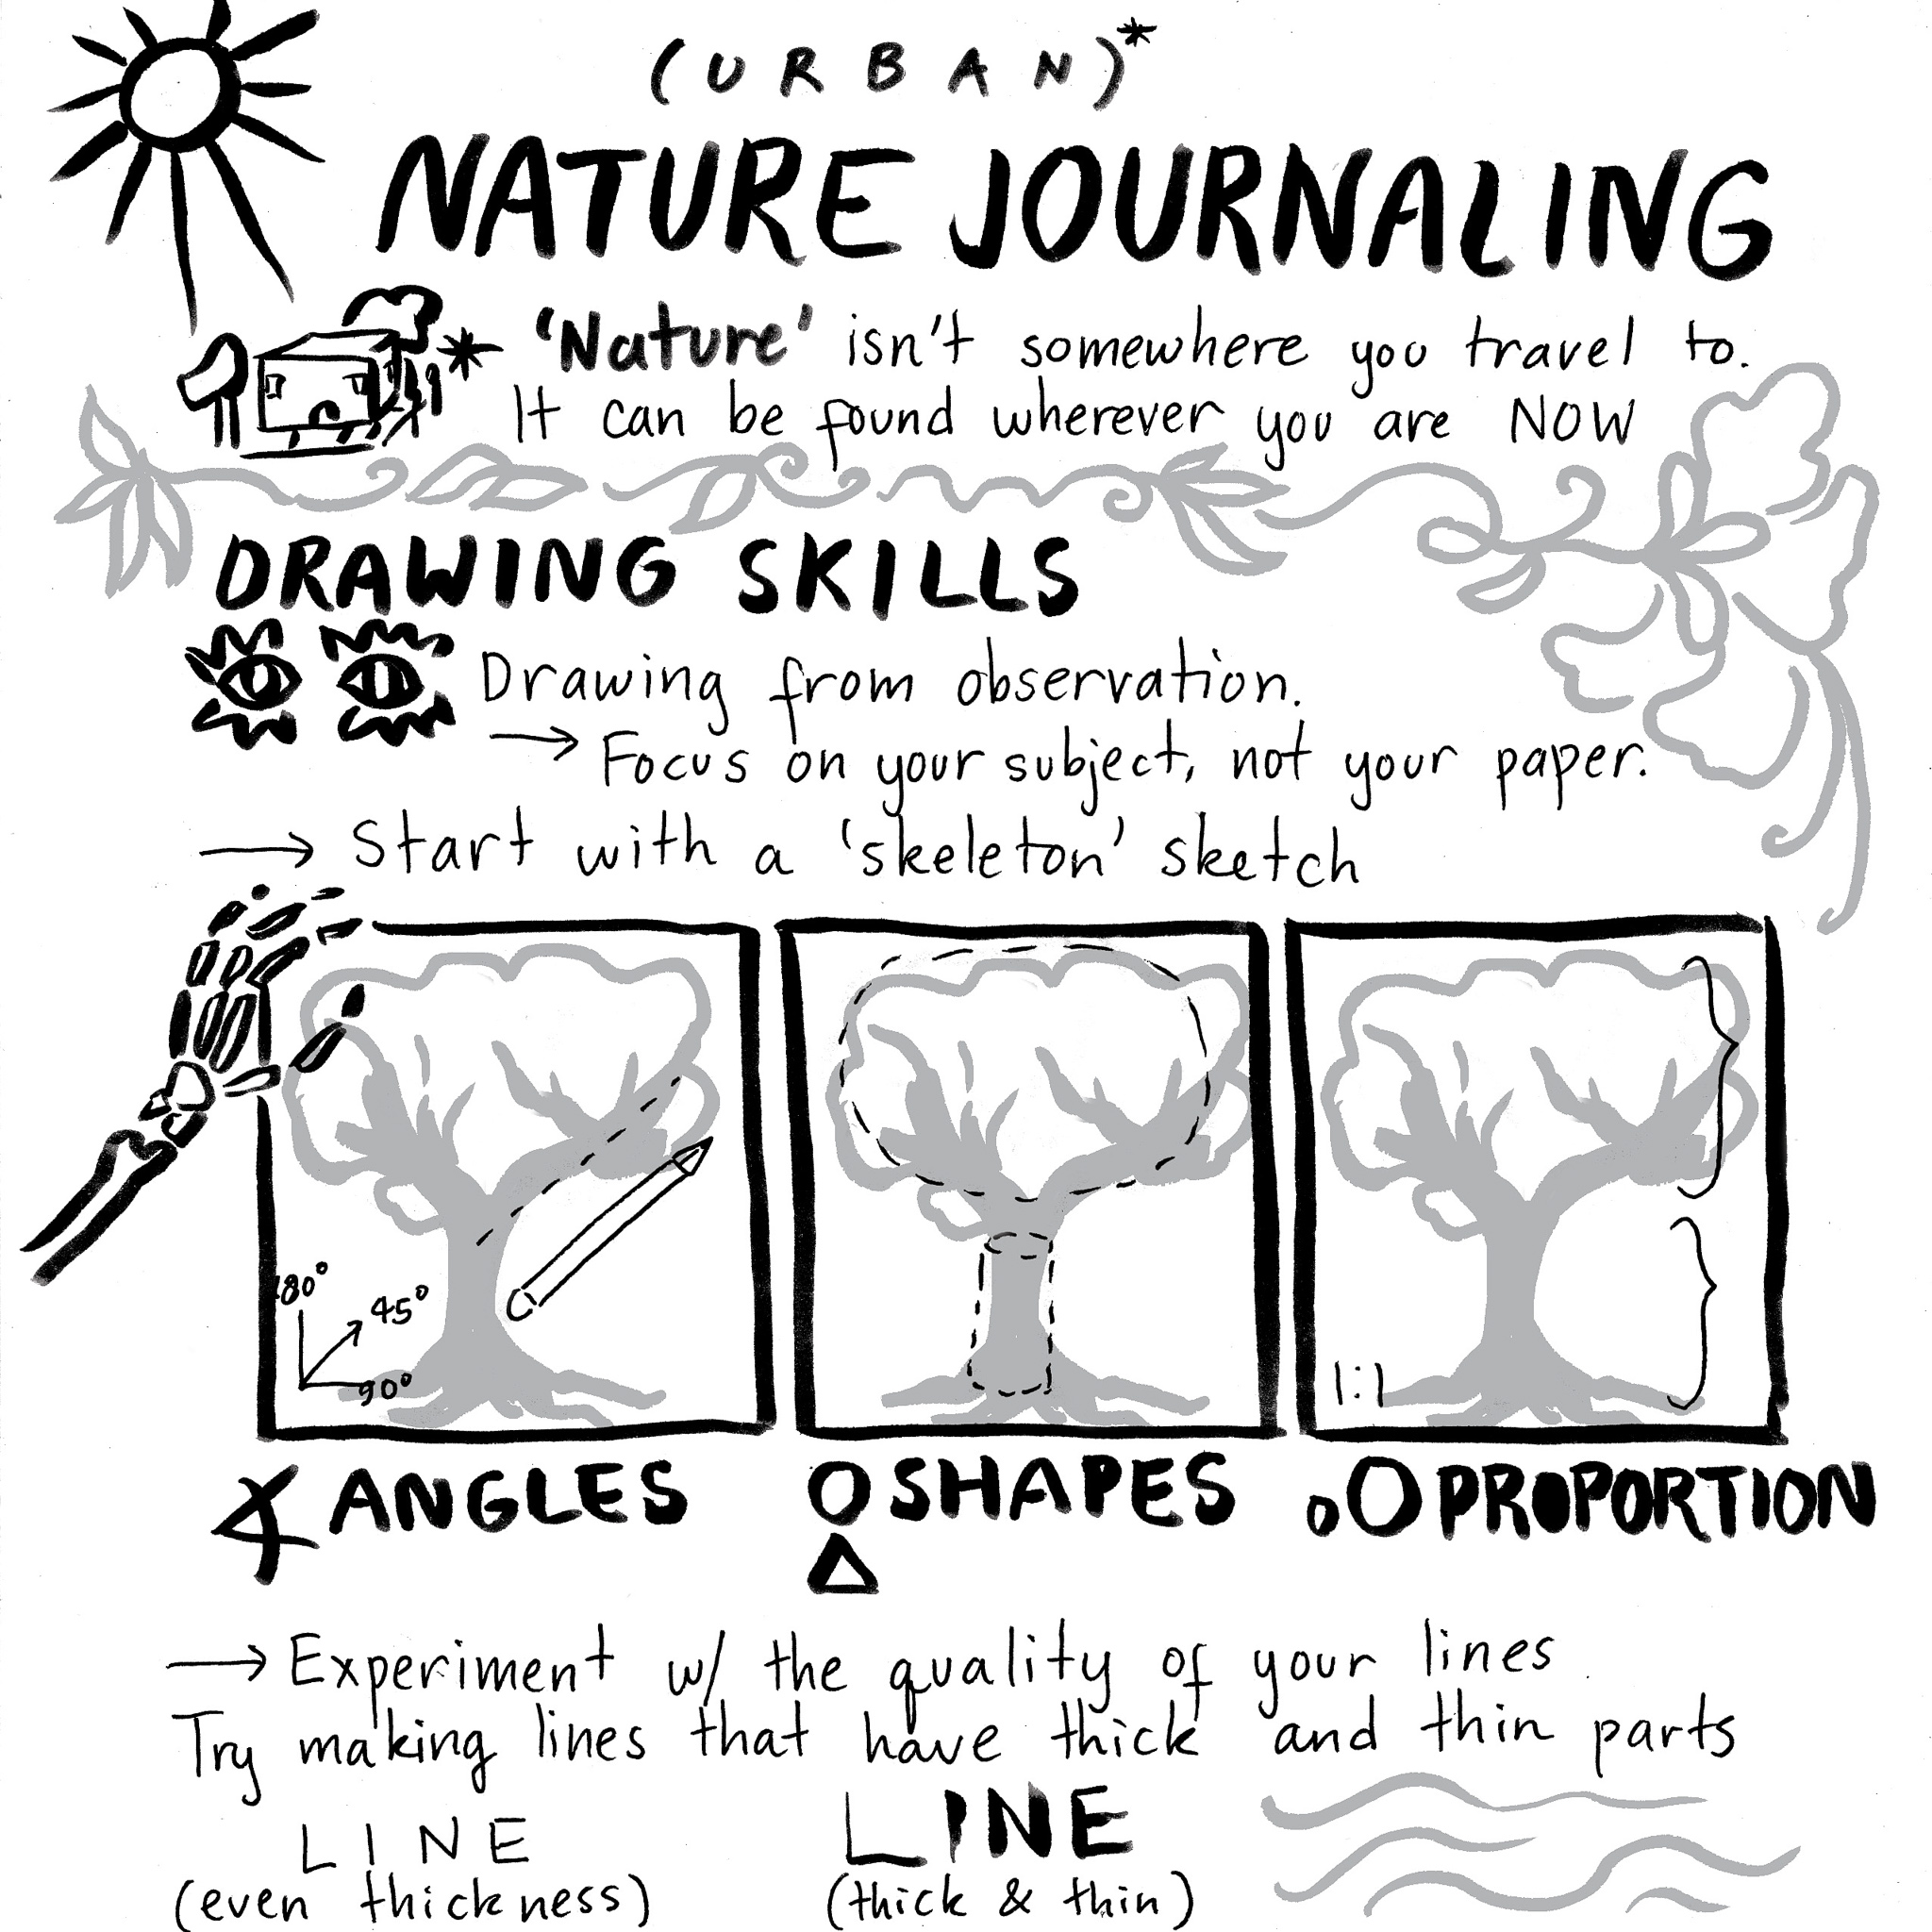 (URBAN)*
NATURE JOURNALING
* 'Nature' isn't somewhere you travel to.
It can be found wherever you are NOW
DRAWING SKILLS
Drawing from observation.
→ Focus on your subject, not your paper.
→ Start with a 'skeleton' sketch
180°
45°
90°
1:1
ANGLES
SHAPES
PROPORTION
→ Experiment w/ the quality of your lines.
Try making lines that have thick and thin parts
LINE
(even thickness)
LINE
(thick & thin)